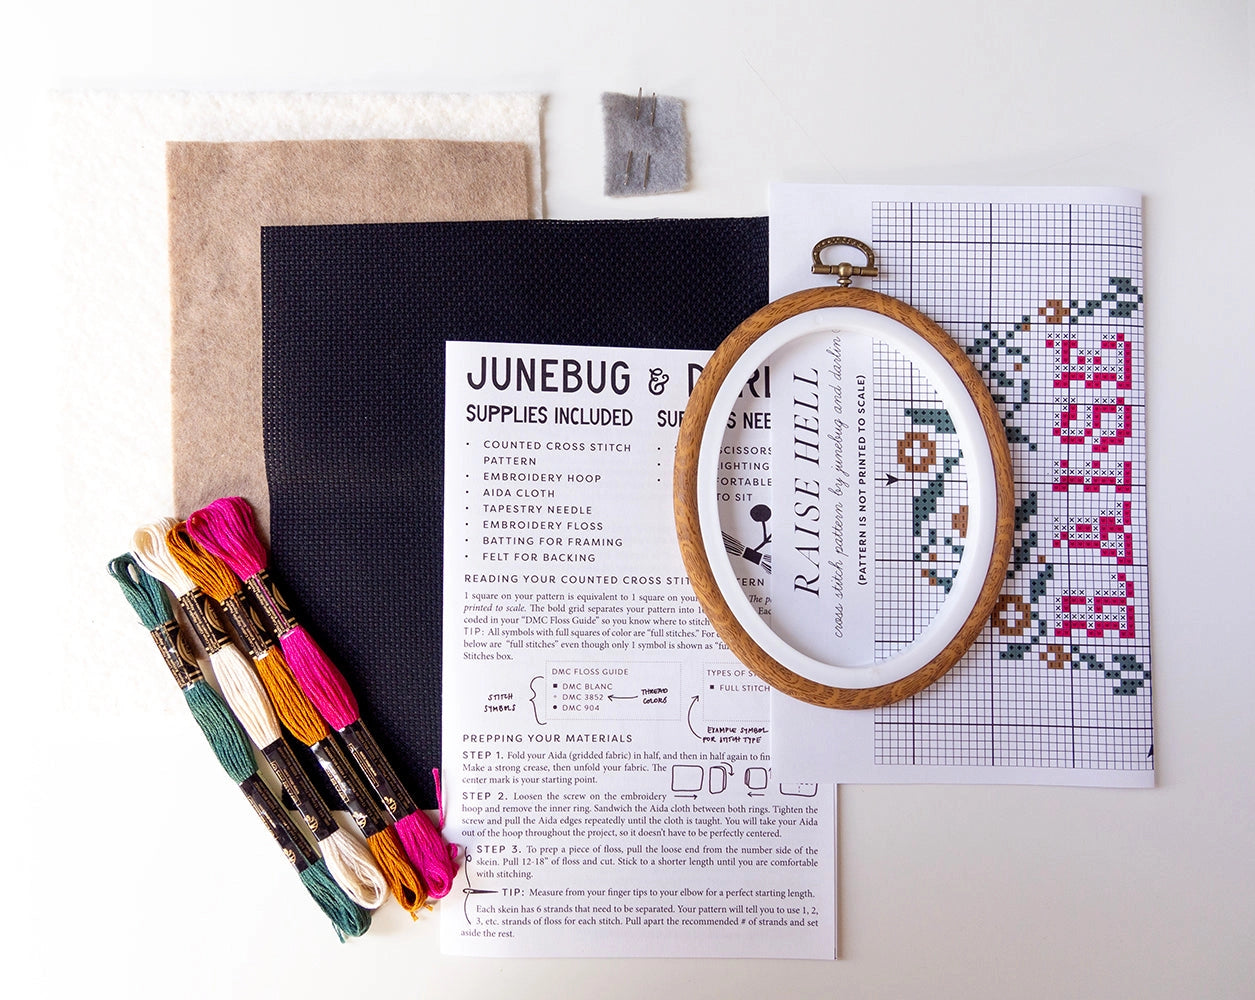 JUNEBUG &
SUPPLIES INCLUDED
• COUNTED CROSS STITCH
PATTERN
• EMBROIDERY HOOP
• AIDA CLOTH
• TAPESTRY NEEDLE
• EMBROIDERY FLOSS
• BATTING FOR FRAMING
• FELT FOR BACKING
SCISSORS
TO SIT
READING YOUR COUNTED CROSS
1 square on your pattern is equivalent to 1 square on your
printed to scale. The bold grid separates your pattern into
coded in your "DMC Floss Guide" so you know where to stitch
TIP: All symbols with full squares of color are "full stitches." For
below are "full stitches" even though only 1 symbol is shown as
Stitches box.
DMC FLOSS GUIDE
■ DMC BLANC
DMC 3852
● DMC 904
STITCH
SYMBOLS
THREAD
COLORS
TYPES OF
■ FULL STITCH
EXAMPLE SYMBOL
FOR STITCH TYPE
PREPPING YOUR MATERIALS
STEP 1. Fold your Aida (gridded fabric) in half, and then in half again to
Make a strong crease, then unfold your fabric. The
center mark is your starting point.
STEP 2. Loosen the screw on the embroidery
hoop and remove the inner ring. Sandwich the Aida cloth between both rings. Tighten the
screw and pull the Aida edges repeatedly until the cloth is taught. You will take your Aida
out of the hoop throughout the project, so it doesn't have to be perfectly centered.
STEP 3. To prep a piece of floss, pull the loose end from the number side of the
skein. Pull 12-18" of floss and cut. Stick to a shorter length until you are comfortable
with stitching.
TIP: Measure from your finger tips to your elbow for a perfect starting length.
Each skein has 6 strands that need to be separated. Your pattern will tell you to use 1, 2,
3, etc. strands of floss for each stitch. Pull apart the recommended # of strands and set
aside the rest.
RAISE HELL
cross stitch pattern by junebug and darlin
(PATTERN IS NOT PRINTED TO SCALE)
RAISE